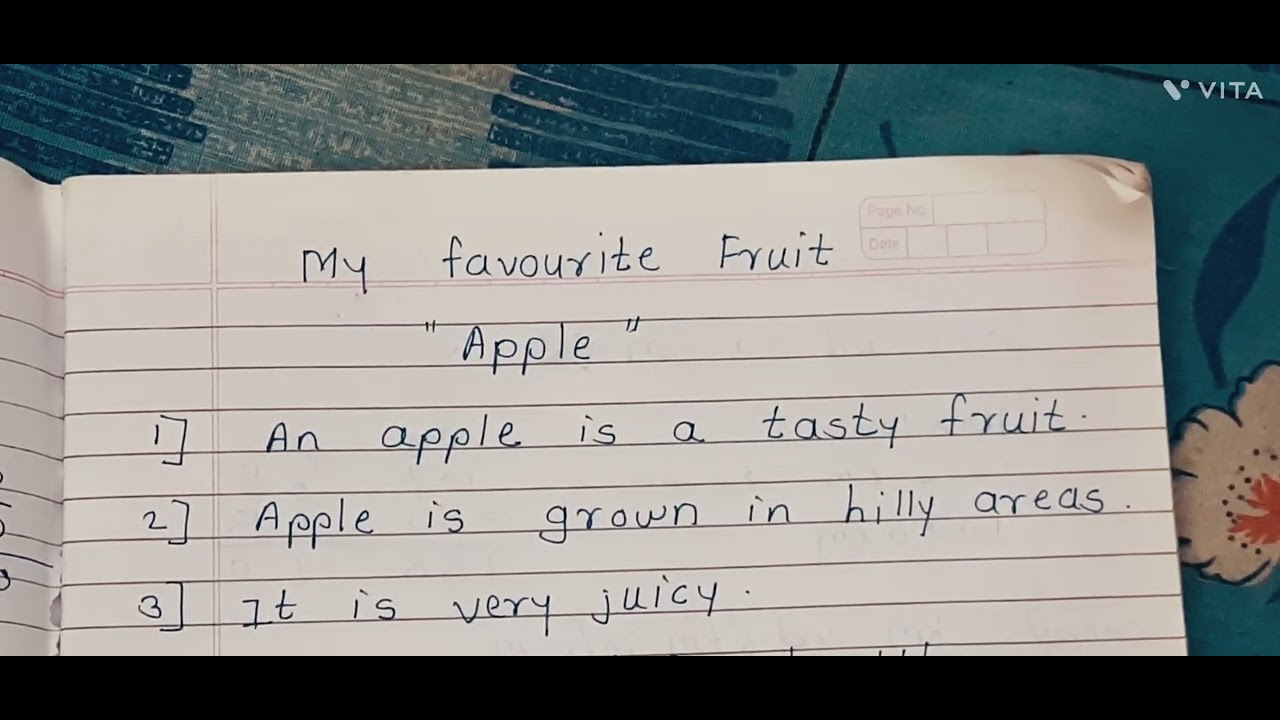 VITA
Page No.
Date
My favourite Fruit
"Apple"
1] An apple is a tasty fruit.
2] Apple is grown in hilly areas.
3] It is very juicy.